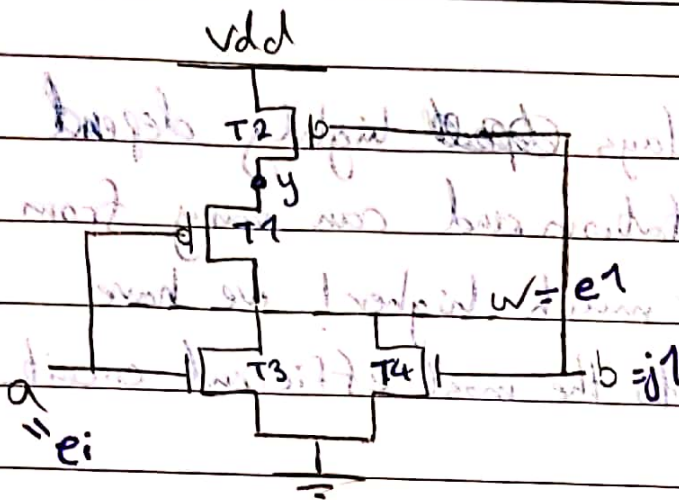 Vdd
T2
y
T1
w = e1
T3 T4
b = j1
a
=
ei